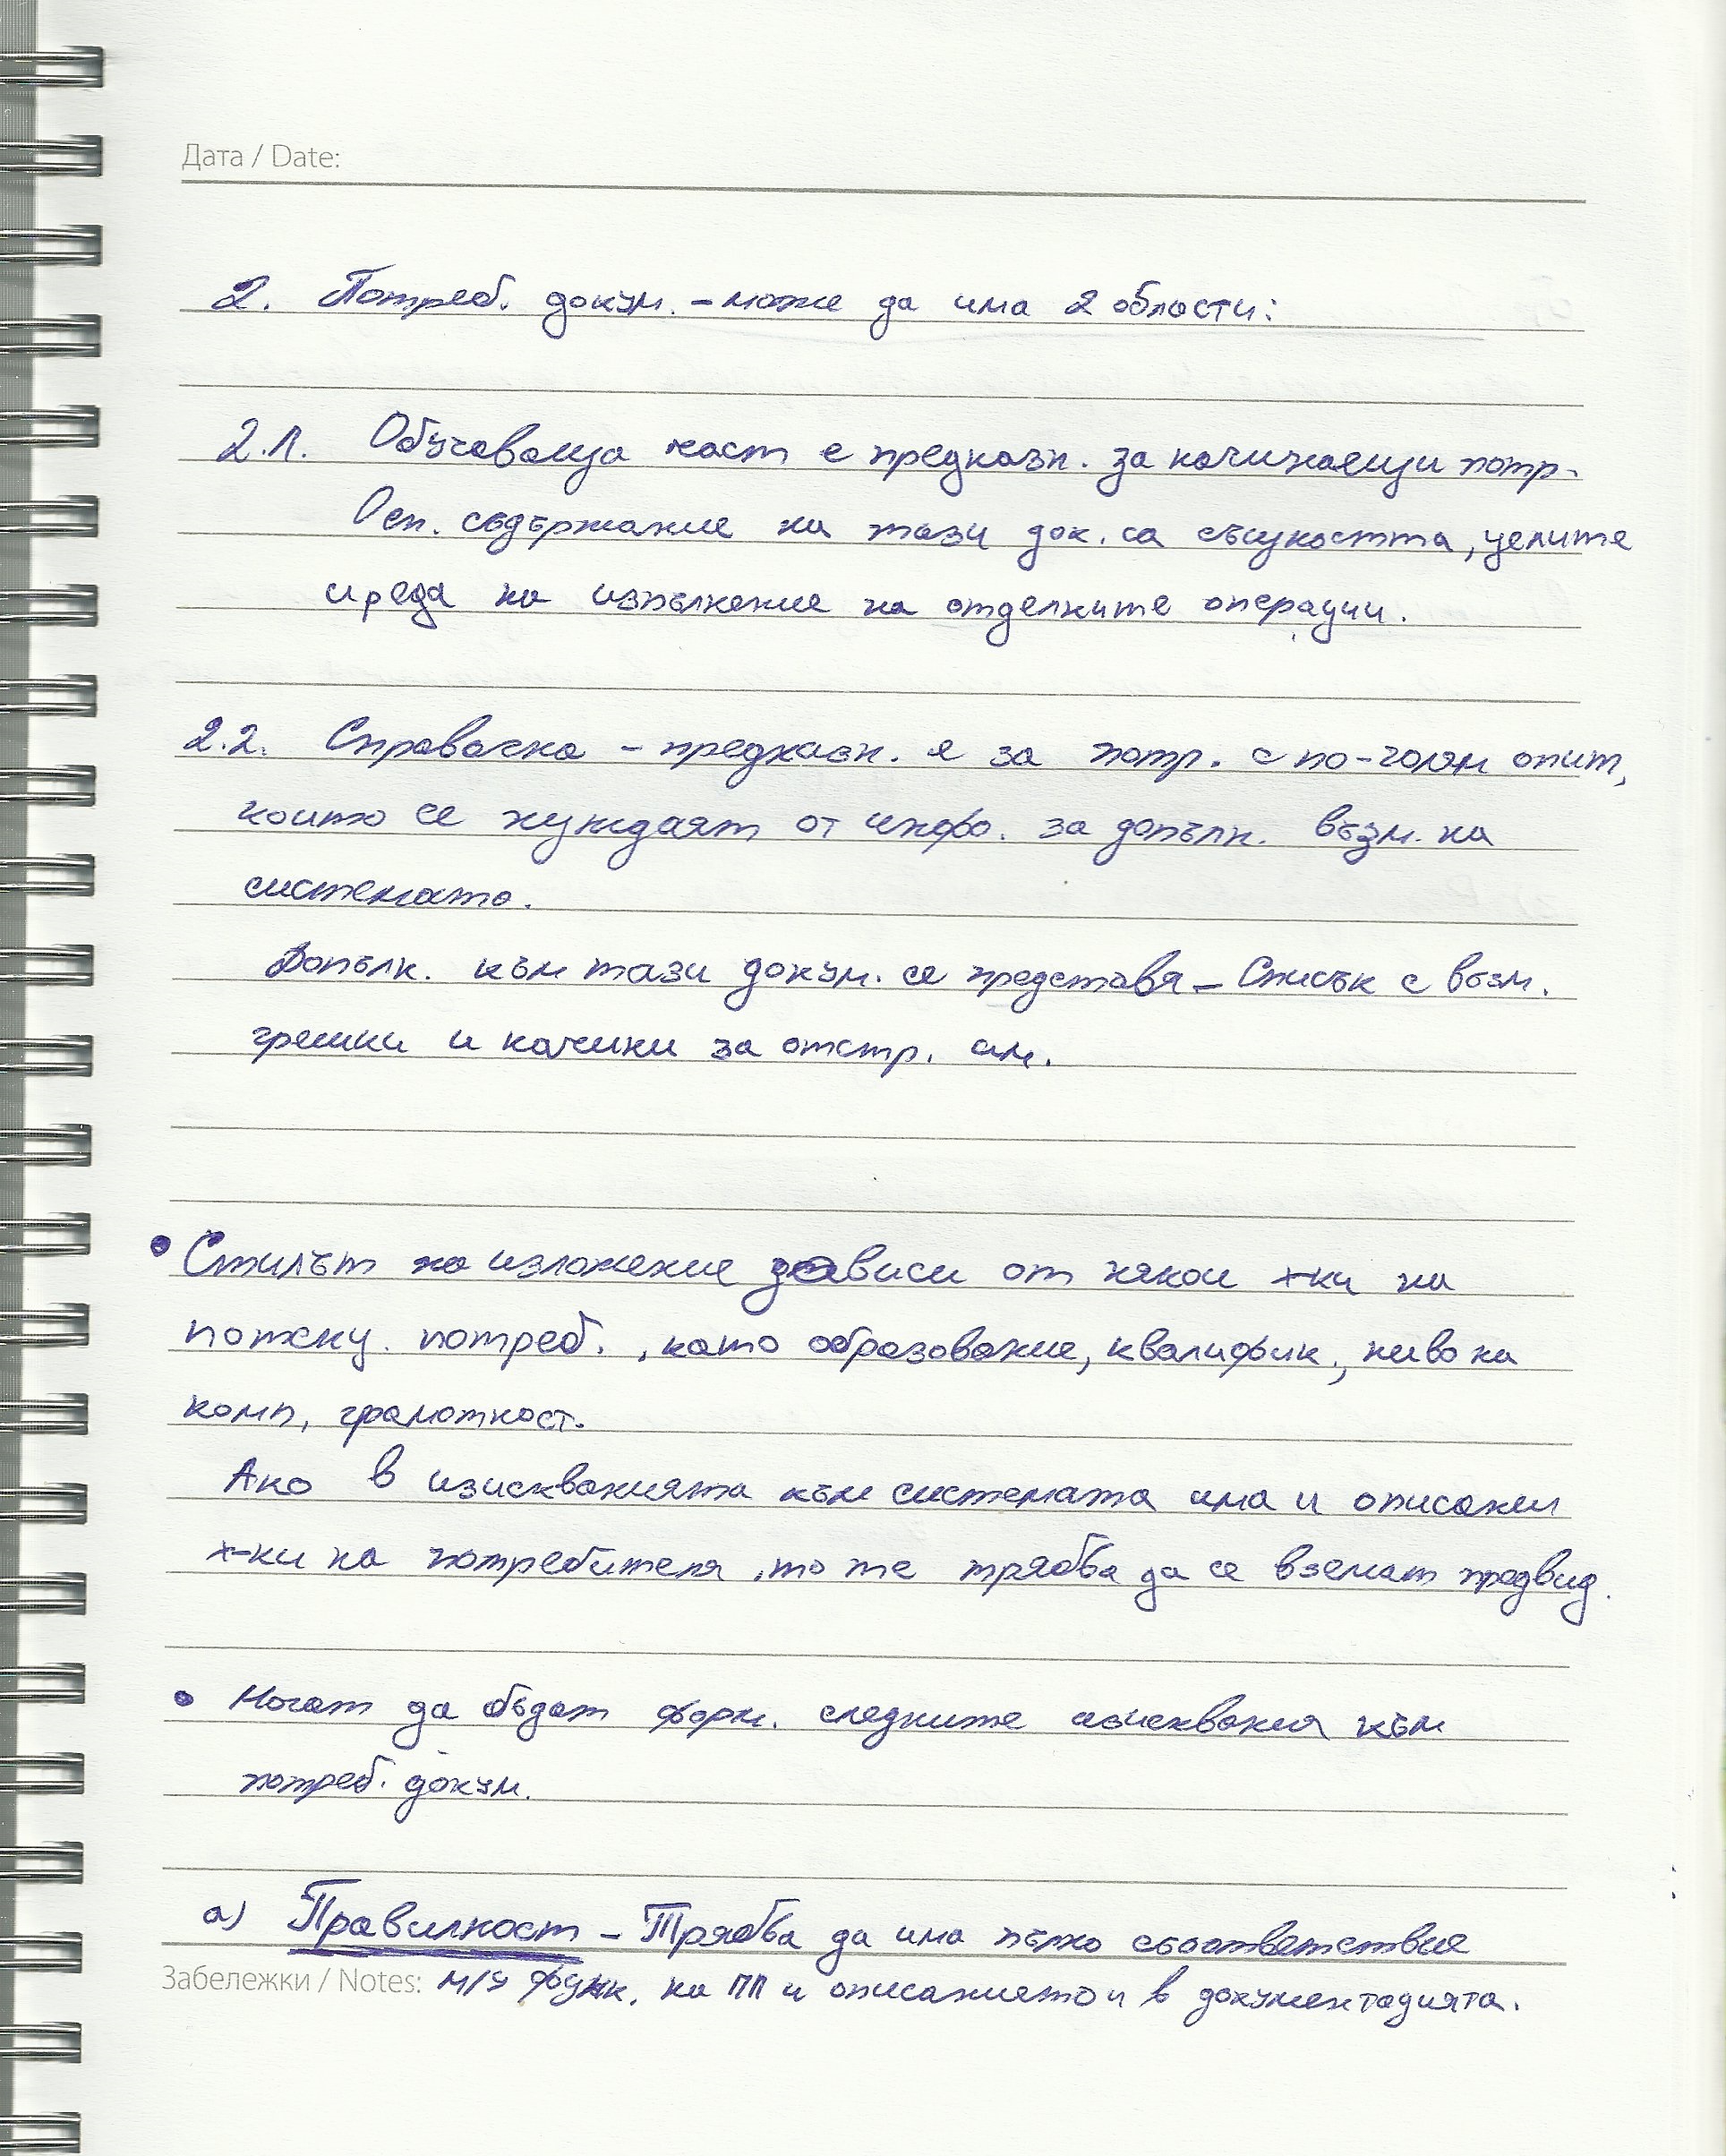 Дата / Date:
2. Потреб. докум. – може да има 2 области:
2.1. Обучаваща част е предназн. за начинаещи потр.
Осн. съдържание на тази док. са същността, целите
и реда на изпълнение на отделните операции.
2.2. Справочна – предназн. е за потр. с по-голям опит,
които се нуждаят от инфо. за допълн. възм. на
системата.
Допълн. към тази докум. се представя – Списък с възм.
грешки и начини за отстр. им.
• Стилът на изложение зависи от някои х-ки на
потенц. потреб., като образование, квалифик., ниво на
комп, грамотност.
Ако в изискванията към системата има и описани
х-ки на потребителя, то те трябва да се вземат предвид.
• Могат да бъдат форм. следните изисквания към
потреб. докум.
а) Правилност – Трябва да има пълно съответствие
Забележки / Notes: м/у функ. на ПП и описанието и в документацията.